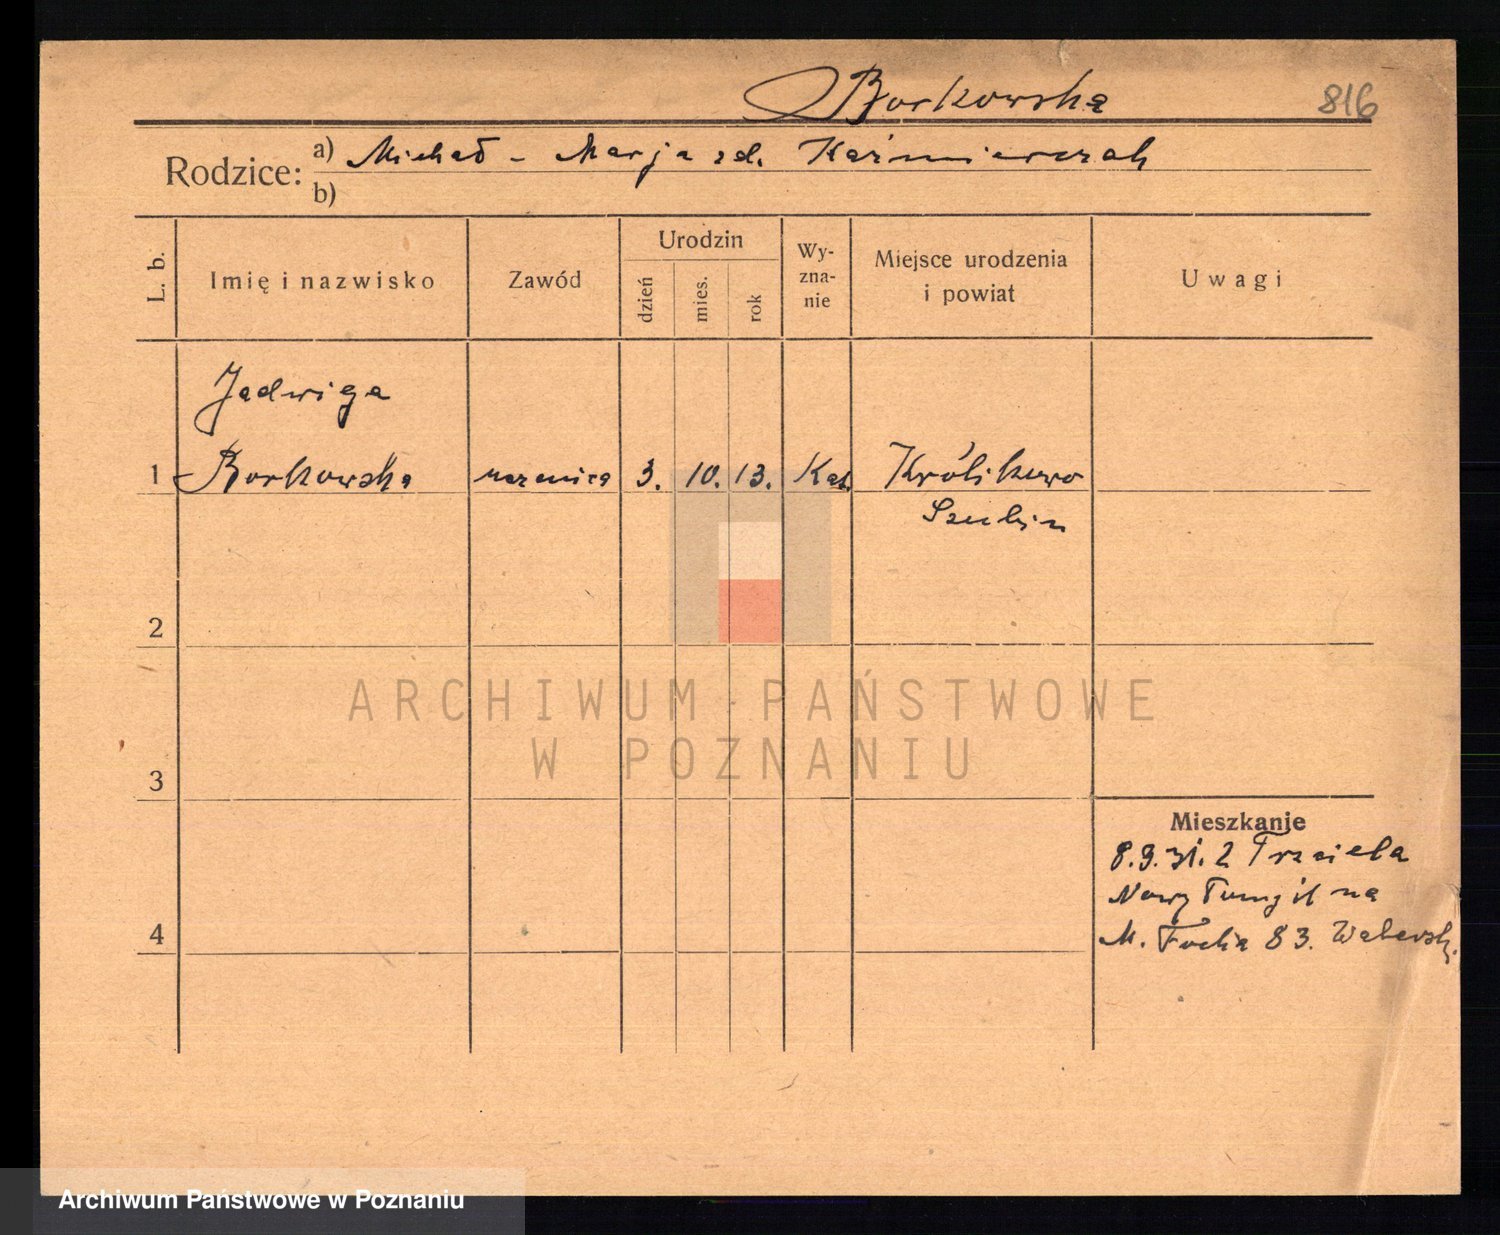 Borkowska
816
Rodzice: a) Michał - Marja zd. Kaźmierczak
b)
L. b.
Imię i nazwisko
Zawód
Urodzin
dzień
mies.
rok
Wy-
zna-
nie
Miejsce urodzenia
i powiat
Uwagi
Jadwiga
1 Borkowska uczenica 3. 10. 13. Kat. Królikowo
Szubin
2
3
4
Mieszkanie
8.9.31. Z Trzciela
Nowy Tomyśl na
M. Focha 83.
ARCHIWUM PAŃSTWOWE
W POZNANIU
Archiwum Państwowe w Poznaniu